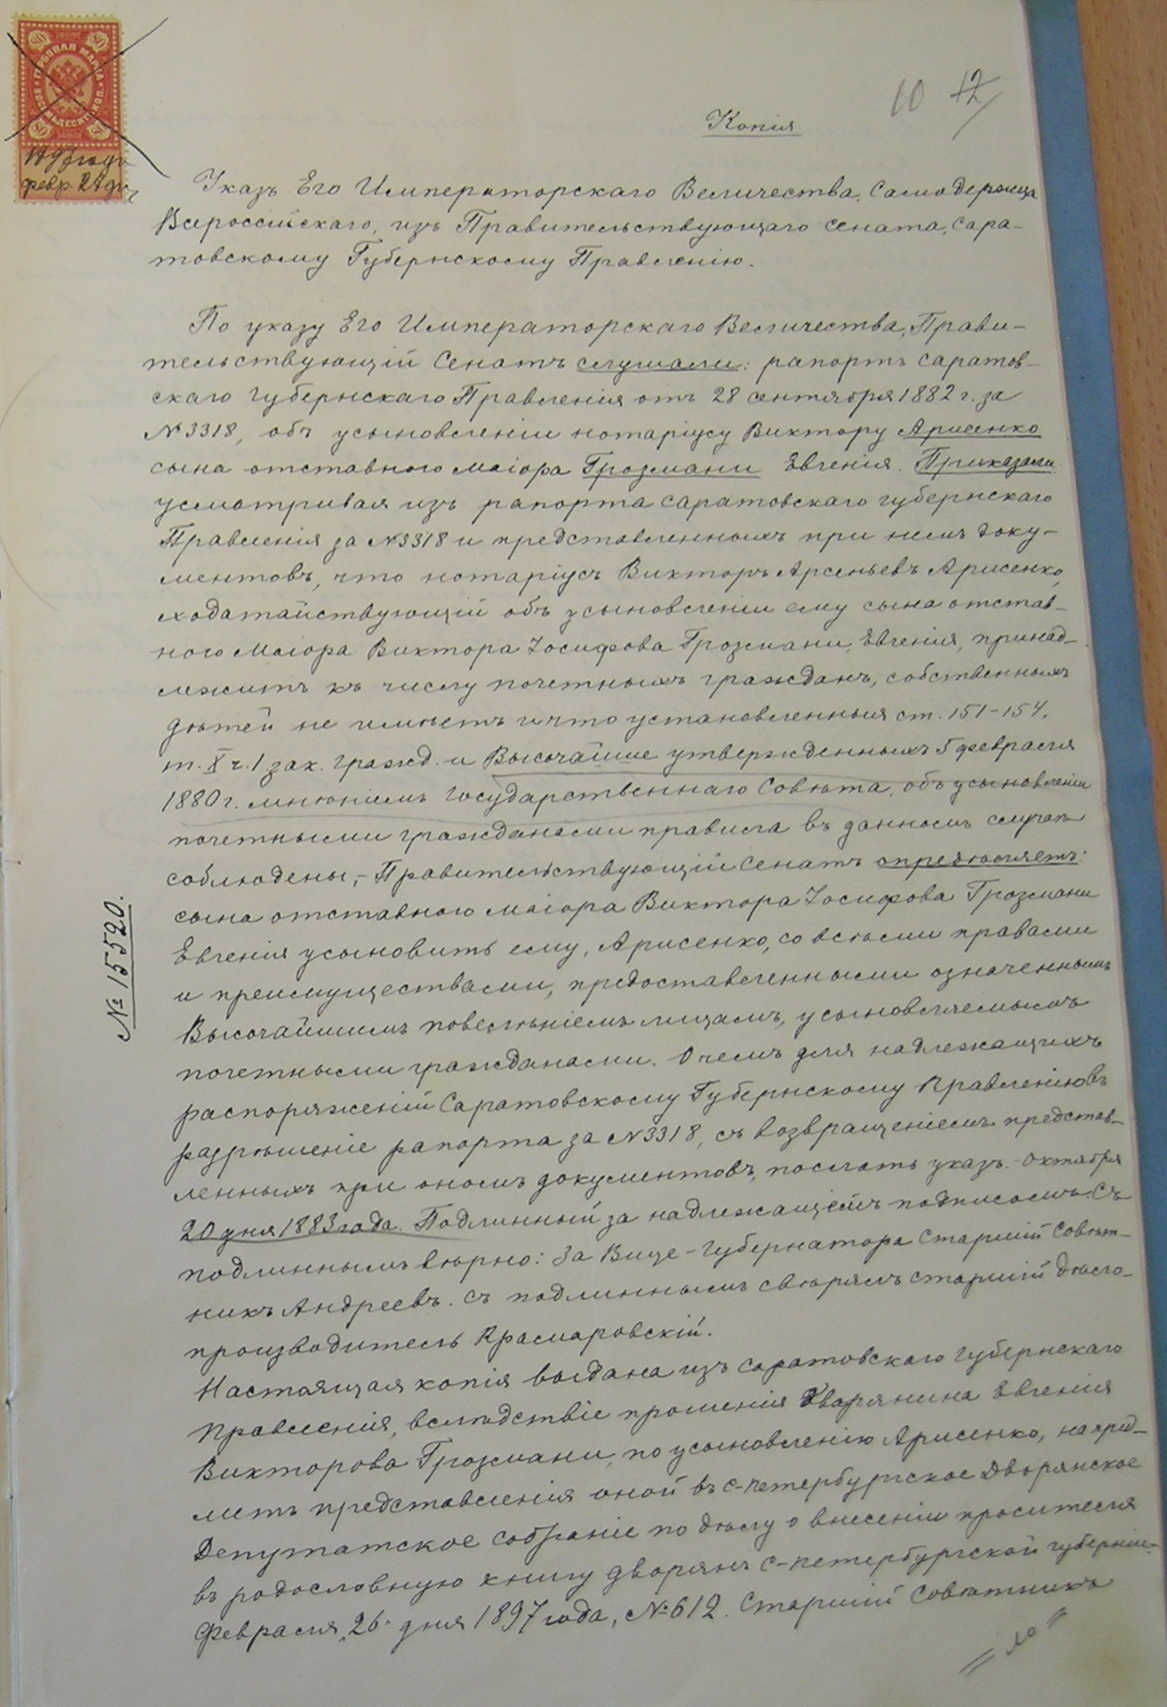 ГЕРБОВАЯ МАРКА
ВОСЕМЬДЕСЯТ КОП.
80 80
80 80
1897 года
февр. 27 дн.
10 12
Копія
Указъ Его Императорскаго Величества, Самодержца
Всероссійскаго, изъ Правительствующаго Сената, Сара-
товскому Губернскому Правленію.
По указу Его Императорскаго Величества, Прави-
тельствующій Сенатъ слушали: рапортъ Саратов-
скаго Губернскаго Правленія отъ 28 сентября 1882 г. за
№ 3318, объ усыновленіи нотаріусу Виктору Арисенко
сына отставного маіора Грозмани Евгенія. Приказали
усматривая изъ рапорта Саратовскаго губернскаго
Правленія за № 3318 и представленныхъ при немъ доку-
ментовъ, что нотаріусъ Викторъ Арсеньевъ Арисенко,
ходатайствующій объ усыновленіи ему сына отстав-
ного Маіора Виктора Іосифова Грозмани, Евгенія, принад-
лежитъ къ числу почетныхъ гражданъ, собственныхъ
дѣтей не имѣетъ и что установленныя ст. 151-154.
т. X ч. 1 зак. гражд. и Высочайше утвержденныхъ 5 февраля
1880 г. мнѣніемъ Государственнаго Совѣта, объ усыновленіи
почетными гражданами правила въ данномъ случаѣ
соблюдены, - Правительствующій Сенатъ опредѣляетъ:
сына отставного маіора Виктора Іосифова Грозмани
Евгенія усыновить ему, Арисенко, со всѣми правами
и преимуществами, предоставленными означеннымъ
Высочайшимъ повелѣніемъ лицамъ, усыновляемымъ
почетными гражданами. О чемъ для надлежащихъ
распоряженій Саратовскому Губернскому Правленію въ
разрѣшеніе рапорта за № 3318, съ возвращеніемъ представ-
ленныхъ при ономъ документовъ, послать указъ. - Октября
20 дня 1883 года. Подлинный за надлежащимъ подписомъ. Съ
подлиннымъ вѣрно: За Вице-Губернатора Старшій Совѣт-
никъ Андреевъ. Съ подлиннымъ свѣрялъ Старшій Дѣло-
производитель Красиаровскій.
Настоящая копія выдана изъ Саратовскаго Губернскаго
Правленія, вслѣдствіе прошенія дворянина Евгенія
Викторова Грозмани, по усыновленію Арисенко, на пред-
метъ представленія оной въ С-Петербургское Дворянское
Депутатское Собраніе по дѣлу о внесеніи просителя
въ родословную книгу дворянъ С-Петербургской губерніи.-
Февраля 26 дня 1897 года, № 612. Старшій Совѣтникъ
№ 15520.